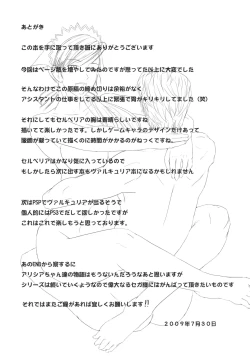 あとがき
この本を手に取って頂き誠にありがとうございます
今回はページ数を増やしてみたのですが思ってた以上に大変でした
そんなわけでこの原稿の締め切りは余裕がなく
アシスタントの仕事をしてる以上に緊張で胃がキリキリしてました（笑）
それにしてもセルベリアの胸は素晴らしいですね
描いてて楽しかったです。しかしゲームキャラのデザインだけあって
複雑で描いていくのに時間がかかるのがねっくですね。
セルベリアはかなり気に入っているので
もしかしたら次に出す本もヴァルキュリア本になるかもしれません
次はPSPでヴァルキュリアが出るそうで
個人的にはPS3でだして欲しかったですが
これはこれで楽しもうと思っております。
あのENDから察するに
アリシアちゃん達の物語はもうないんだろうなあと思いますが
シリーズは続いていくようなので偉大なるセガ様にはがんばって頂きたいものです
それではまたご縁があれば宜しくお願いします!!
２００９年７月３０日